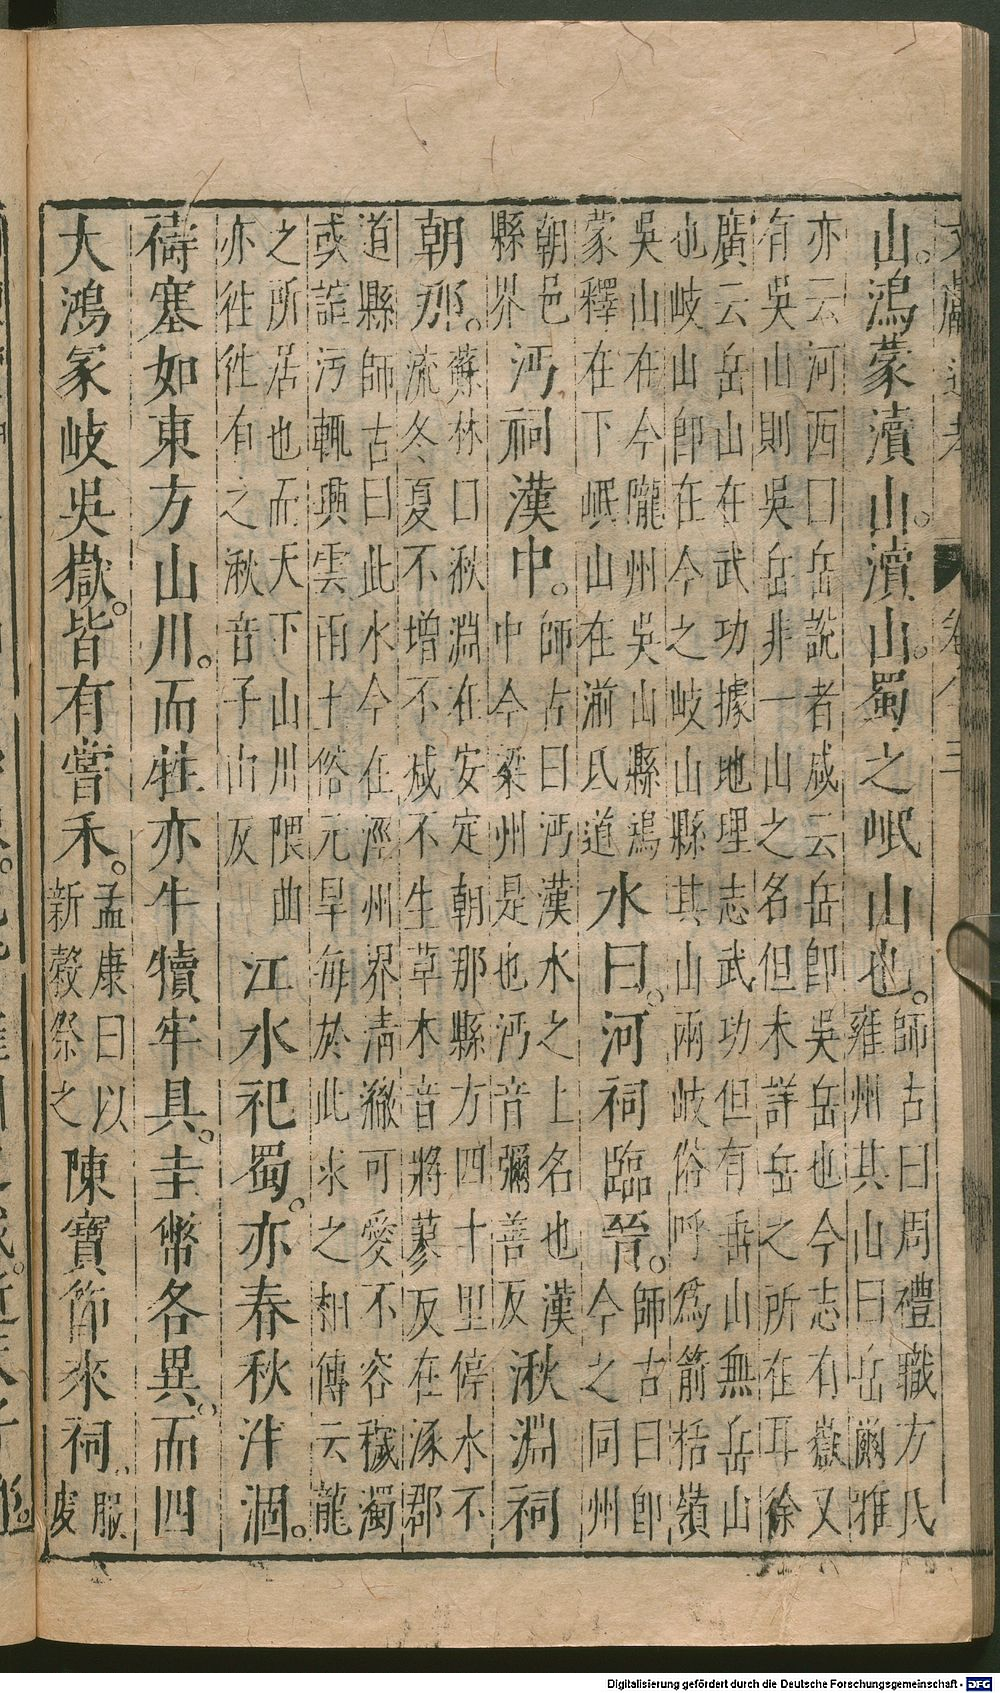 文獻通考 卷八十三
山。鴻蒙瀆山。瀆山。蜀之岷山也。
師古曰周禮職方氏
雍州其山曰岳爾雅
亦云河西曰岳說者咸云岳即吳岳也今志有嶽又
有吳山則吳岳非一山之名但未詳岳之所在耳徐
廣云岳山在武功據地理志武功但有垂山無岳山
也岐山即在今之岐山縣其山兩岐俗呼為箭栝嶺
吳山在今隴州吳山縣鴻
蒙釋在下岷山在湔氐道
水曰。河祠臨晉。
師古曰即
今之同州
朝邑
縣界
沔祠漢中。
師古曰沔漢水之上名也漢
中今梁州是也沔音彌善反
湫淵祠
朝那。
蘇林曰湫淵在安定朝那縣方四十里停水不
流冬夏不增不減不生草木音將蓼反在涿郡
道縣師古曰此水今在涇州界清澈可愛不容穢濁
或諠污輒興雲雨土俗元旱每於此求之相傳云龍
之所居也而天下山川隈曲
亦往往有之湫音子由反
江水祀蜀。亦春秋泮涸。
禱塞如東方山川。而牲亦牛犢牢具。圭幣各異。而四
大鴻冢岐吳嶽。皆有嘗禾。
孟康曰以
新穀祭之
陳寶節來祠。
服
虔
Digitalisierung gefördert durch die Deutsche Forschungsgemeinschaft - DFG